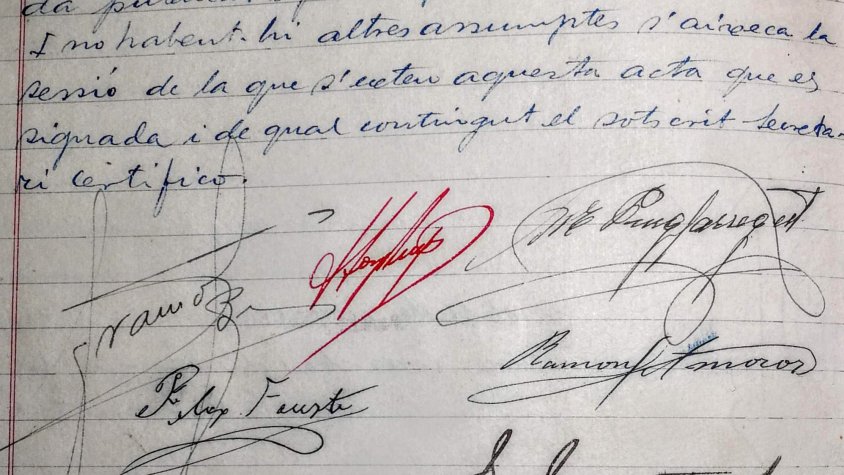 I no habent-hi altres assumptes s'aixeca la
sessió de la que s'exten aquesta acta que es
signada i de qual contingut el sotscrit Secreta-
ri certifico.
Puigfarregut
Ramon Sitmoros
Felix Fauste